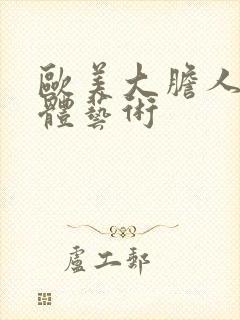 歐美大膽人
體藝術
盧工郵